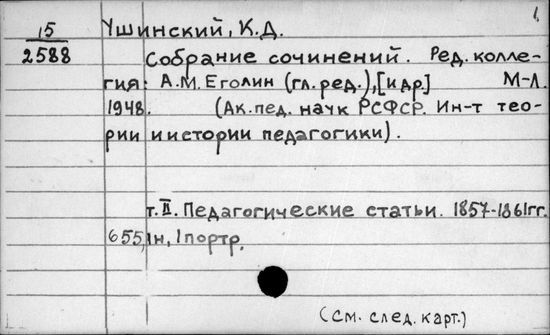 1.
15 Ушинский, К.Д.
2588 Собрание сочинений. Ред. колле-
гия: А.М. Еголин (гл. ред.), [и др.] М-Л.
1948. (Ак. пед. наук РСФСР. Ин-т тео-
рии и истории педагогики).
т. II. Педагогические статьи. 1857-1861 гг.
655, 1н, 1 портр.
(см. след. карт.)